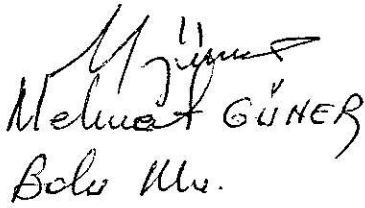 Mehmet GÜNER
Bolu Mv.